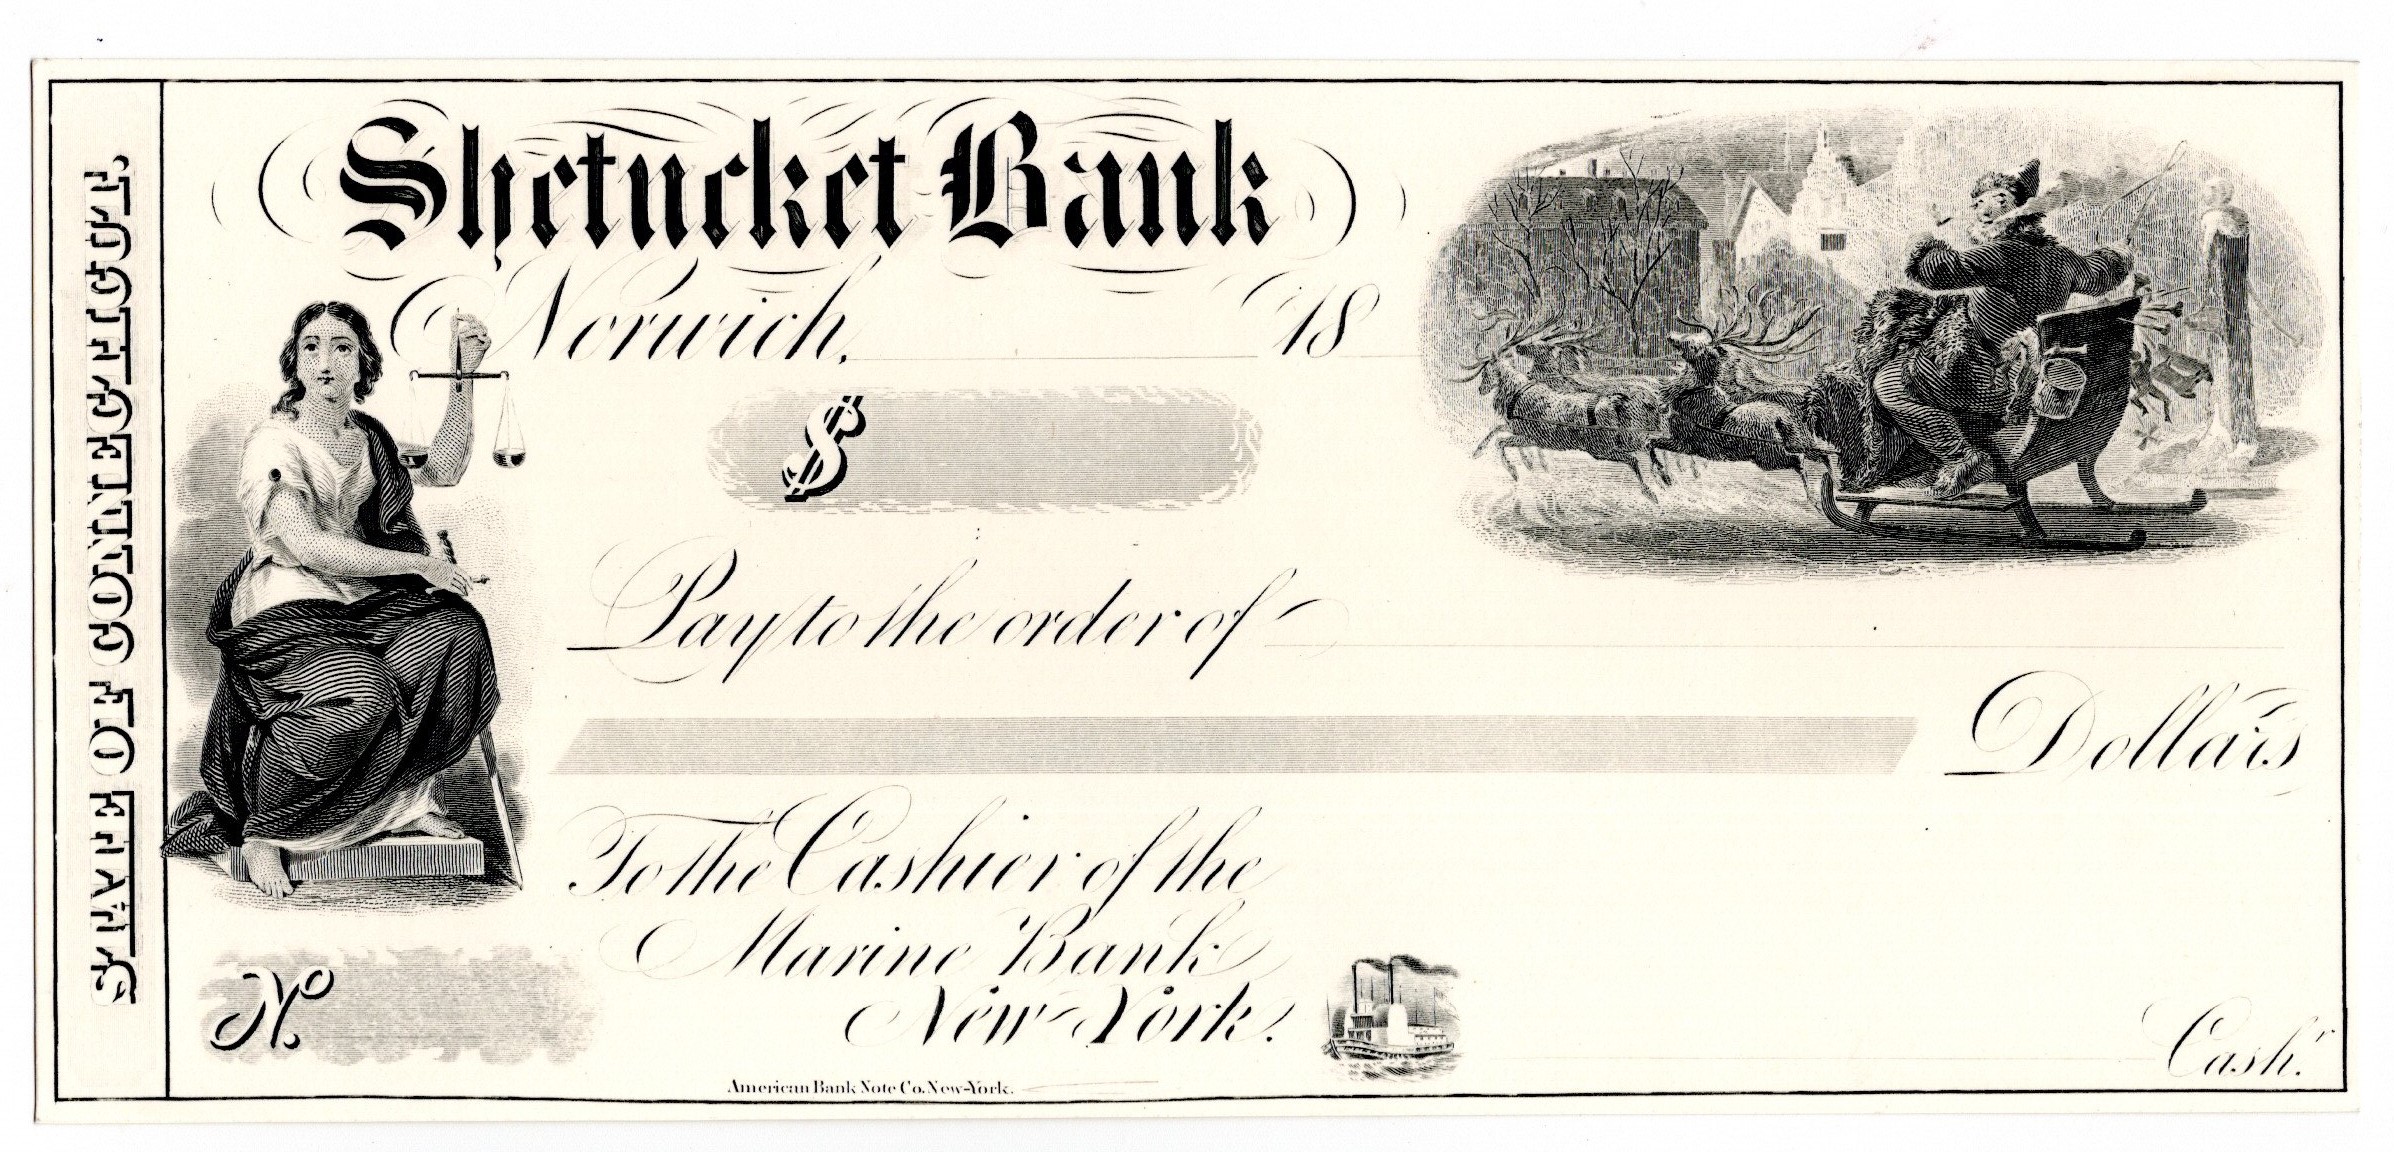 STATE OF CONNECTICUT.
Shetucket Bank
Norwich, 18
$
Pay to the order of
Dollars
To the Cashier of the
Marine Bank
New-York.
No.
Cashr.
American Bank Note Co. New-York.